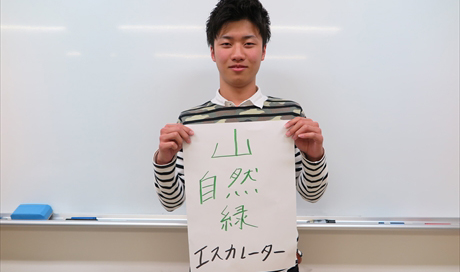 山
自然
緑
エスカレーター